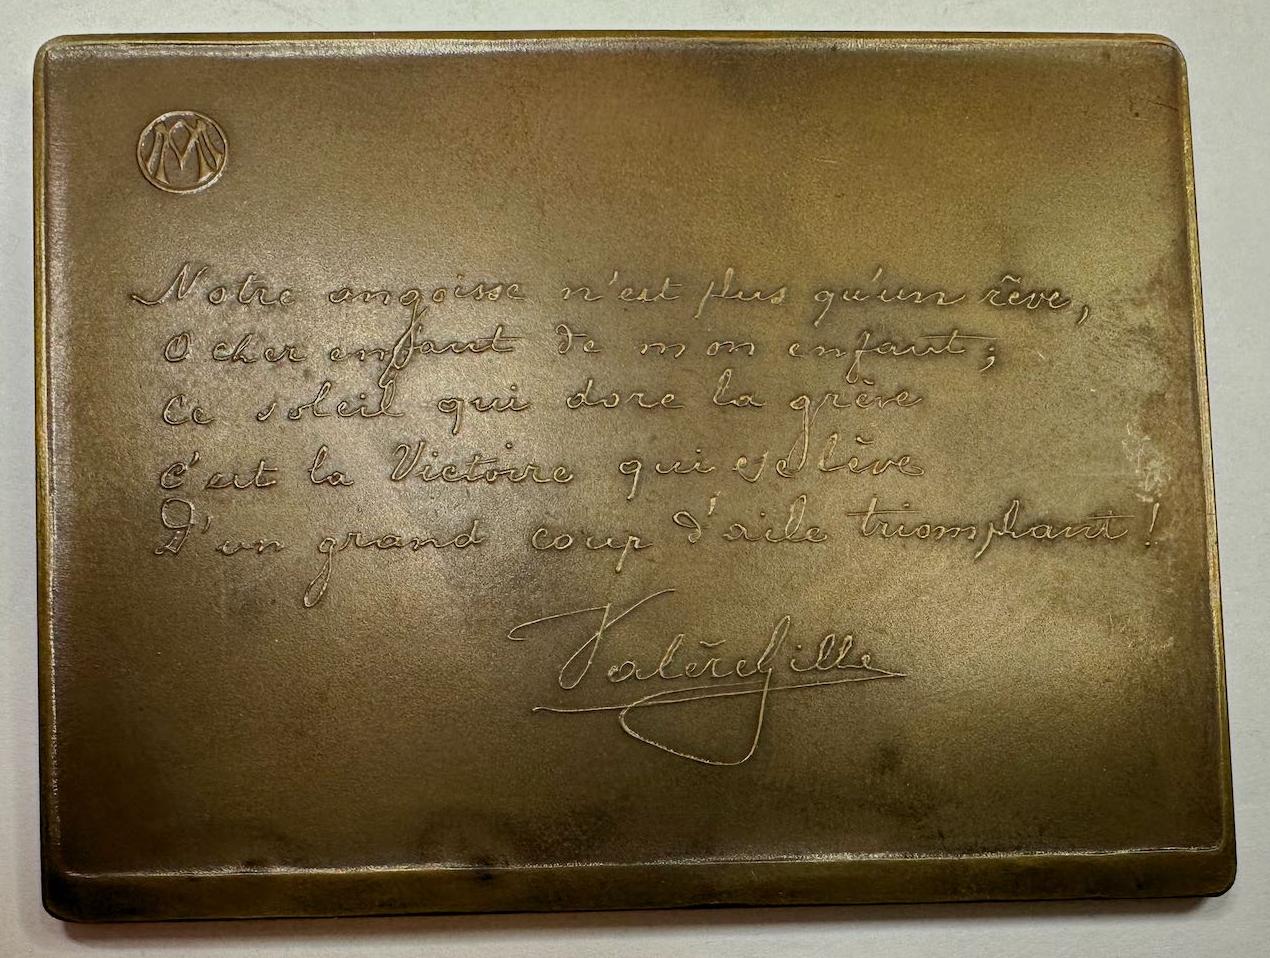 M
Notre angoisse n'est plus qu'un rêve,
O cher enfant de mon enfant;
Ce soleil qui dore la grève
c'est la Victoire qui se lève
D'un grand coup d'aile triomphant!
Valère Gille